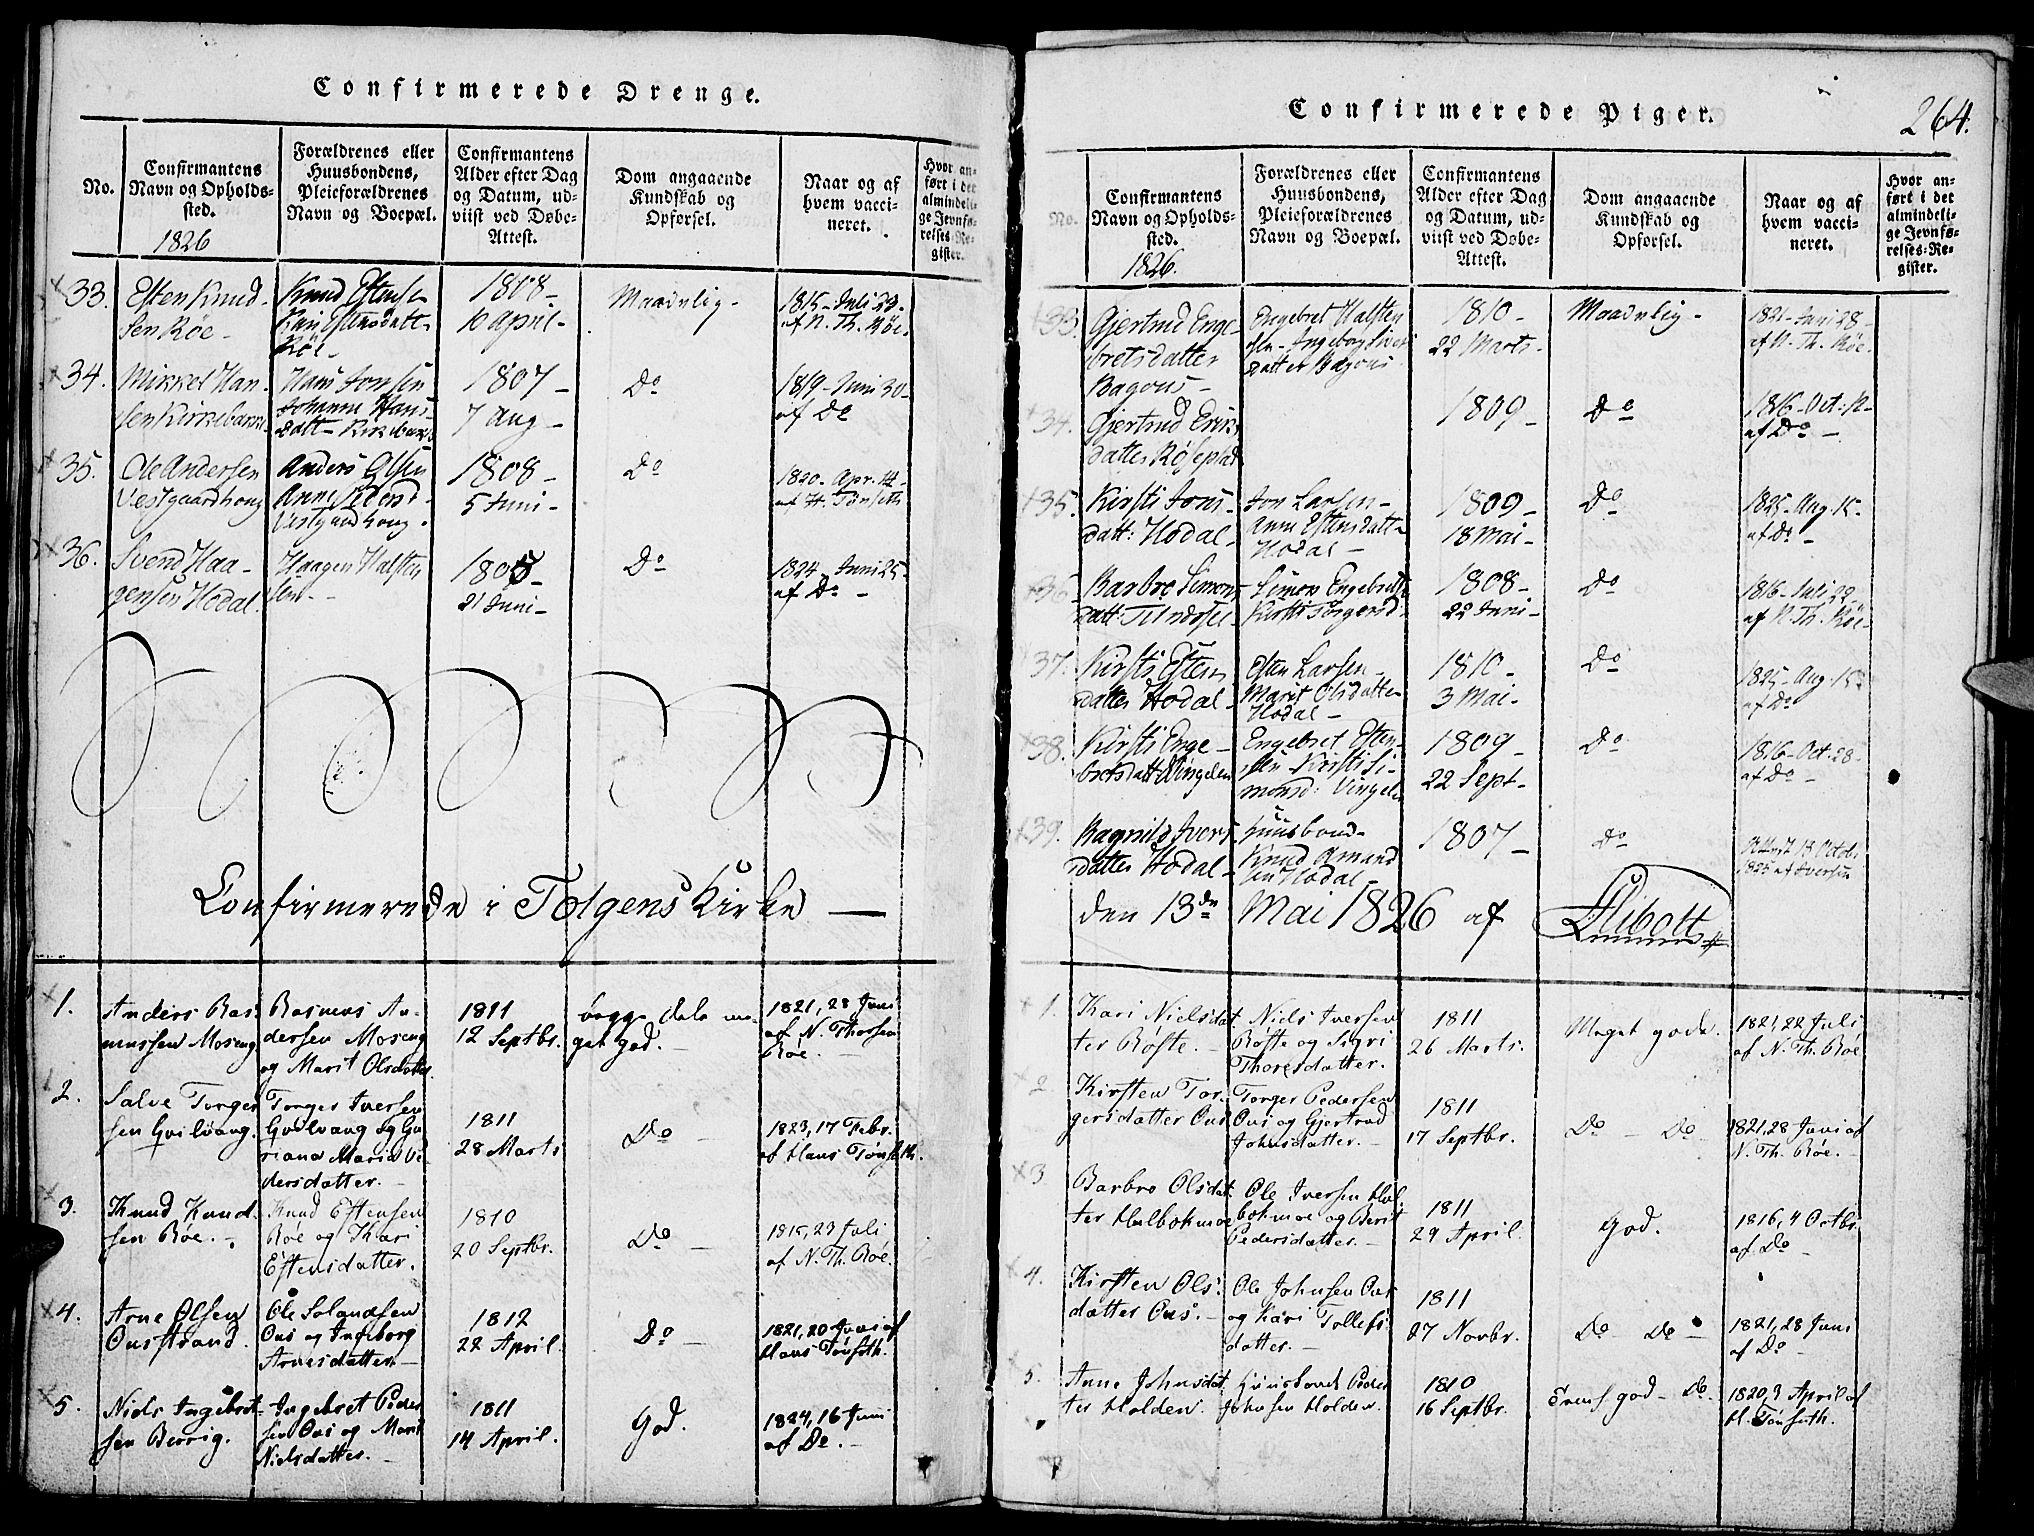 Confirmerede Drenge.
No.
Confirmantens
Navn og Opholds-
sted.
1826
Forældrenes eller
Huusbondens,
Pleieforældrenes
Navn og Boepæl.
Confirmantens
Alder efter Dag
og Datum, ud-
viist ved Døbe-
Attest.
Dom angaaende
Kundskab og
Opførsel.
Naar og af
hvem vacci-
neret.
Hvor an-
ført i det
almindeli-
ge Jevnfø-
relses-Re-
gister.
33. Esten Knud-
sen Röe -
Knud Estense
Kari Estensdatt-
Röe -
1808-
10 April-
Maadelig-
1815- Juli 29-
af N. Th. Röe-
34. Mikkel Han-
sen Kirkebakk
Hans Jonsen
Johanna Hans
datt- Kirkebakk
1807-
7 Aug-
Do
1819- Juni 30-
af Do
35. Ole Andersen
Vestgaardhoug
Anders Olsen
Anne Pedersd-
Vestgaardhoug-
1808-
5 Juni-
Do
1820- Apr. 14-
af H. Tönseth
36. Svend Haa-
gensen Hodal.
Haagen Halsten
sen-
1808-
21 Juni-
Do
1824- Juni 25-
af Do -
Confirmerede i Tolgens Kirke —
1. Anders Ras-
mussen Moseng
Rasmus An-
dersen Moseng
og Marit Olsdatter
1811
12 Septbr.
begge dele me-
get god. -
1821, 28 Juni
af N. Thorsen
Röe. -
2. Salve Torger
sen Gvilvang.
Torger Iversen
Gvilvang og Gu
riana Maria Pe
dersdatter. -
1811
28 Marts
Do -
1823, 17 Febr.
af Hans Tönseth.
3. Knud Knud-
sen Röe. -
Knud Estensen
Röe og Kari
Estensdatter.
1810
20 Septbr.
Do -
1815, 23 Juli
af N. Th. Röe.
4. Arne Olsen
Ousstrand.
Ole Salandsen
Ous og Ingeborg
Arnesdatter. -
1812
22 April.
Do -
1821, 20 Juni af
Hans Tönseth.
5. Niels Ingebret-
sen Berrig.
Ingebret Peder
sen Ous og Marit
Nielsdatter. -
1811
14 April.
God.
1824, 16 Juni
af Do. -
Confirmerede Piger.
264.
No.
Confirmantens
Navn og Opholds-
sted.
1826.
Forældrenes eller
Huusbondens,
Pleieforældrenes
Navn og Boepæl.
Confirmantens
Alder efter Dag
og Datum, ud-
viist ved Døbe-
Attest.
Dom angaaende
Kundskab og
Opførsel.
Naar og af
hvem vacci-
neret.
Hvor an-
ført i det
almindeli-
ge Jevnfø-
relses-Re-
gister.
33. Gjertrud Enge-
bretsdatter
Bagous -
Engebret Halsten
sen - Ingeborg Iver
datter Bagous
1810-
22 Marts-
Maadelig-
1821- Juni 28-
af N. Th. Röe.
34. Gjertrud Eriks
datter Röseplad
1809-
Do
1816- Oct: 12-
af Do -
35. Kirsti Jons-
datt: Hodal-
Jon Larsen-
Anne Estensdatt-
Hodal -
1809-
18 Mai-
Do
1825- Aug. 15-
af Do -
36. Barbro Simons-
datt:
Simon Engebrets
Kirsti Torgersd:
1808-
22 Juni-
Do
1816- Juli 22-
af N. Th. Röe-
37. Kirsti Estens
datter Hodal-
Esten Larsen-
Marit Olsdatte-
Hodal -
1810-
3 Mai-
Do
1825- Aug. 15-
af Do
38. Kirsti Enge-
bretsdatt Vingelen
Engebret Esten-
sen - Kirsti Si-
monsd: Vingele
1809-
22 Sept-
Do
1816- Oct. 28-
af Do -
39. Ragnild Ivers
datter Hodal-
Huusbond-
Knud Amund
sen Hodal -
1807-
Do
Attest 13 Octobr
1825 af Iversen
den 13de Mai 1826 af
1. Kari Nielsdat-
ter Röste. -
Niels Iversen
Röste og Sigri
Thoresdatter.
1811
26 Marts.
Meget gode.
1821, 22 Juli
af N. Th. Röe
2. Kirsten Tor-
gersdatter Ous
Torger Pedersen
Ous og Gjertrud
Johnsdatter. -
1811
17 Septbr.
Do - Do -
1821, 28 Juni af
N. Th. Röe. -
3 Barbro Olsdat-
ter Hulbokmoe
Ole Iversen Hul
bokmoe og Berit
Pedersdatter. -
1811
29 April.
God.
1816, 4 Octbr.
af Do -
4. Kirsten Ols-
datter Ous. -
Ole Johnsen Ous
og Kari Tollefs-
datter. -
1811
27 Novbr.
Do - Do -
1821, 28 Juni
af Do -
5. Anne Johnsdat-
ter Holden.
Huusbond Peder
Johnsen Holden.
1810
16 Septbr.
god - Do.
1820, 3 April af
H. Tönseth.